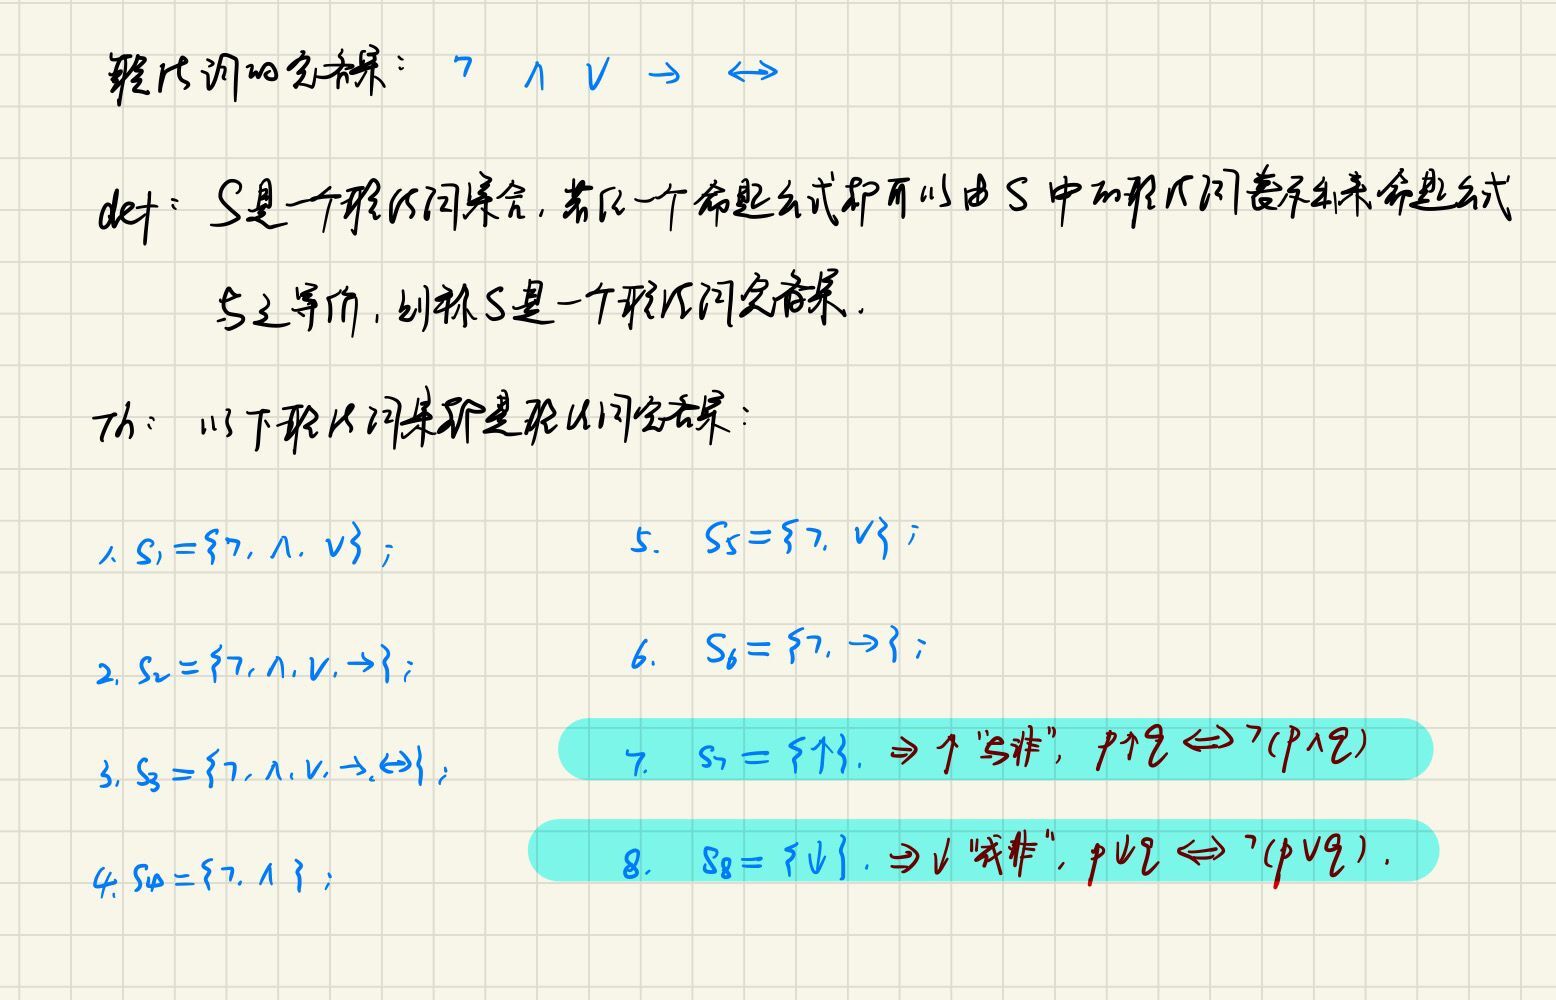 联结词的完备集： ¬ ∧ ∨ → ↔
def： S是一个联结词集合，若任一个命题公式都可以由S中的联结词表示出来命题公式
与之等价，则称S是一个联结词完备集．
Th： 以下联结词集都是联结词完备集：
1. S₁={¬, ∧, ∨}；
2. S₂={¬, ∧, ∨, →}；
3. S₃={¬, ∧, ∨, →, ↔}；
4. S₄={¬, ∧}；
5. S₅={¬, ∨}；
6. S₆={¬, →}；
7. S₇={↑}. ⇒ ↑ "与非", p↑q ⇔ ¬(p∧q)
8. S₈={↓}. ⇒ ↓ "或非", p↓q ⇔ ¬(p∨q).